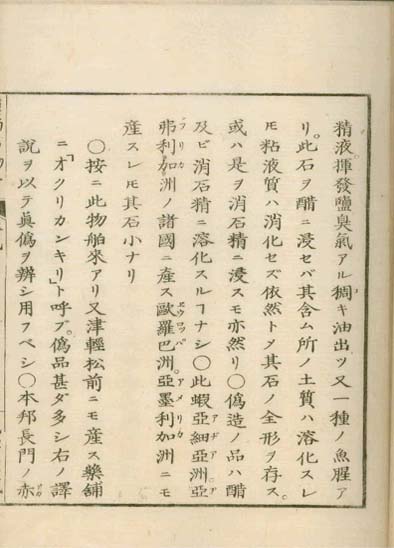 精液。揮發鹽臭氣アル稠キ油出ツ又一種ノ魚腥ア
リ。此石ヲ醋ニ浸セバ其含ム所ノ土質ハ溶化スレ
𪜈粘液質ハ消化セズ依然トメ其石ノ全形ヲ存ス。
或ハ是ヲ消石精ニ浸スモ亦然リ〇偽造ノ品ハ醋
及ビ消石精ニ溶化スルヿナシ〇此蝦亞細亞洲亞
弗利加洲ノ諸國ニ産ス歐羅巴洲。亞墨利加洲ニモ
産スレ𪜈其石小ナリ
〇按ニ此物舶來アリ又津輕松前ニモ産ス藥舗
ニ「オクリカンキリ」ト呼ブ。偽品甚ダ多シ右ノ譯
說ヲ以テ眞偽ヲ辨シ用フベシ〇本邦長門ノ赤